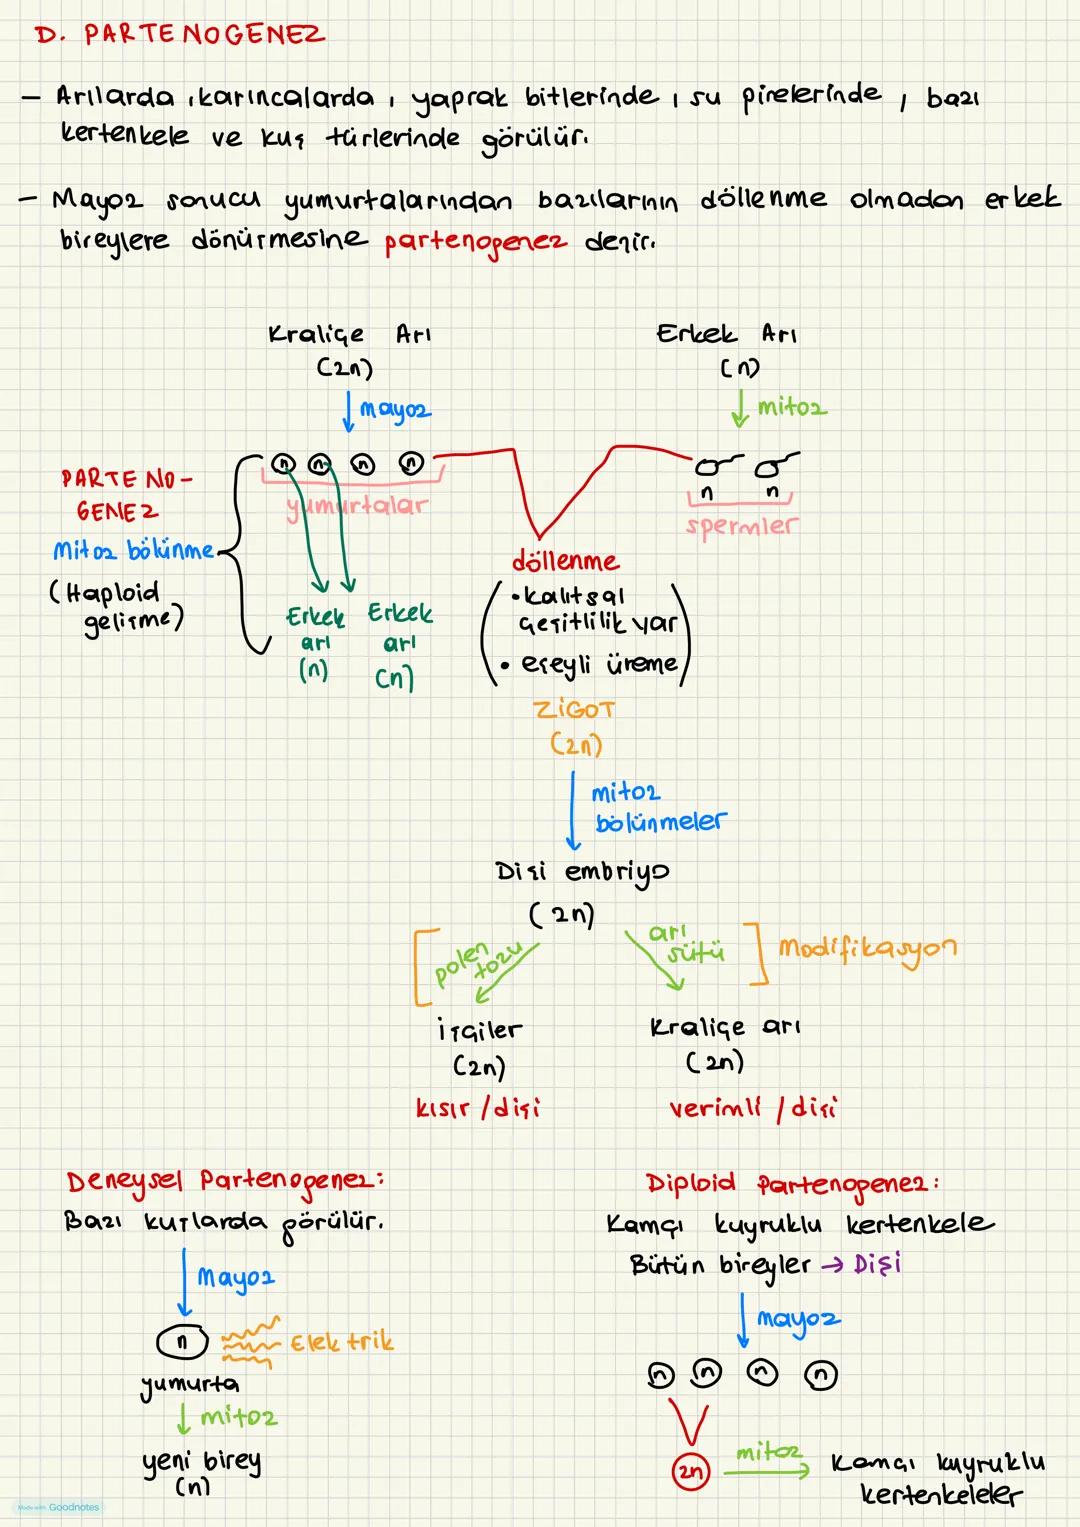 D. PARTENOGENEZ
- Arılarda, karıncalarda, yaprak bitlerinde, su pirelerinde, bazı
kertenkele ve kuş türlerinde görülür.
- Mayoz sonucu yumurtalarından bazılarının döllenme olmadan erkek
bireylere dönüşmesine partenogenez denir.
Kraliçe Arı
(2n)
mayoz
Erkek Arı
(n)
mitoz
n n n n
yumurtalar
n n
spermler
PARTENO-
GENEZ
Mitoz bölünme
(Haploid
gelişme)
Erkek arı (n)
Erkek arı (n)
döllenme
• kalıtsal
çeşitlilik var
• eşeyli üreme
ZİGOT
(2n)
mitoz
bölünmeler
Dişi embriyo
(2n)
polen tozu
arı sütü
Modifikasyon
İşçiler
(2n)
kısır / dişi
Kraliçe arı
(2n)
verimli / dişi
Deneysel Partenogenez:
Bazı kuşlarda görülür.
Mayoz
n
Elektrik
yumurta
mitoz
yeni birey
(n)
Diploid Partenogenez:
Kamçı kuyruklu kertenkele
Bütün bireyler → Dişi
mayoz
n n n n
2n
mitoz
Kamçı kuyruklu
kertenkeleler
Made with Goodnotes